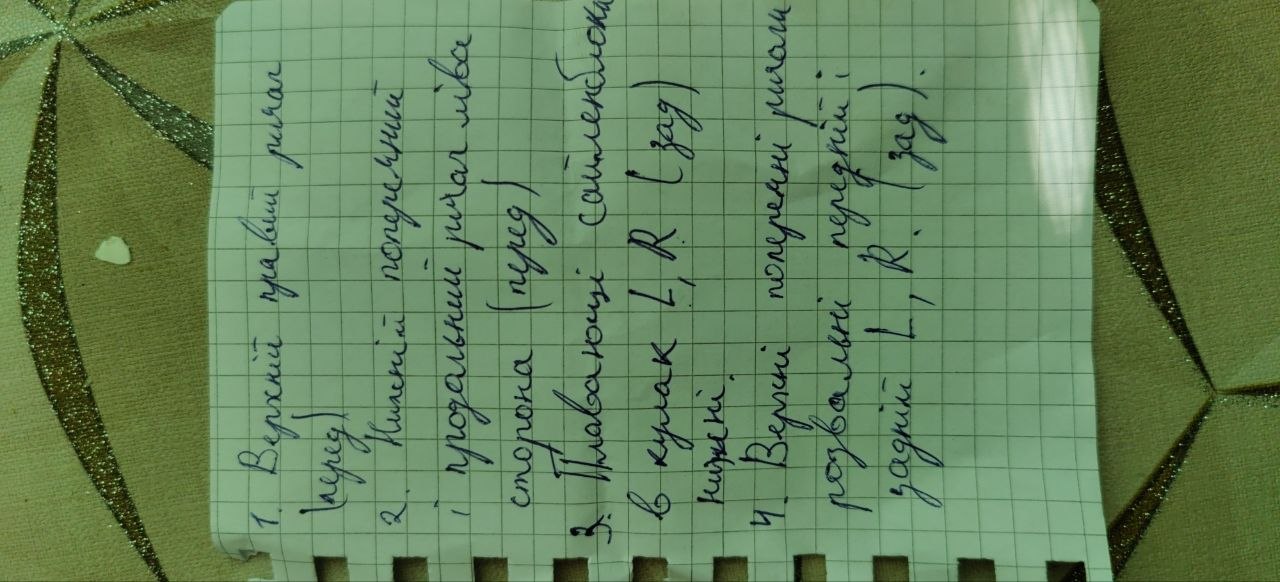 1. Верхній правий ричаг
(перед)
2. Нижній поперечний
і продальний ричаг ліва
сторона (перед)
3. Плаваючі сайлентблоки
в кулак L, R (зад)
нижні.
4. Верхні поперечні ричаги
розвальні передній і
задній L, R. (зад).